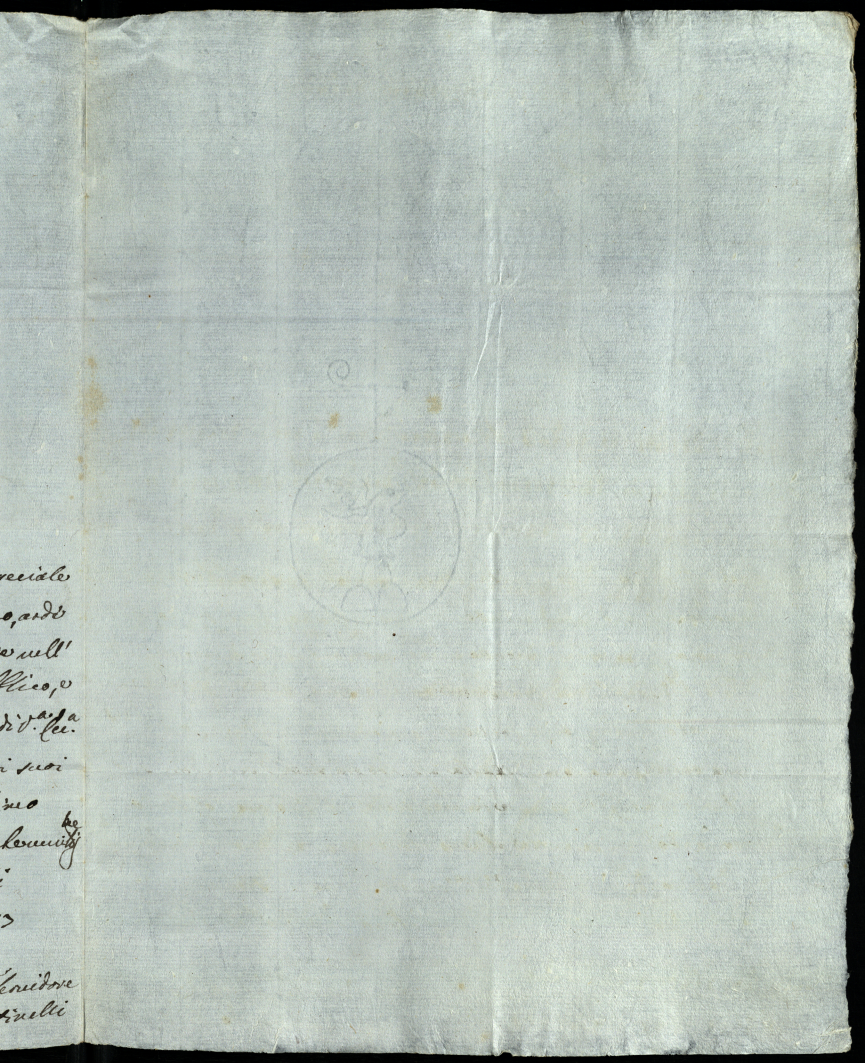 reciale
o, ardi
e nell'
blico, e
di V.ª Ecc.ª
i suoi
imo
i
3
Servidore
tinelli